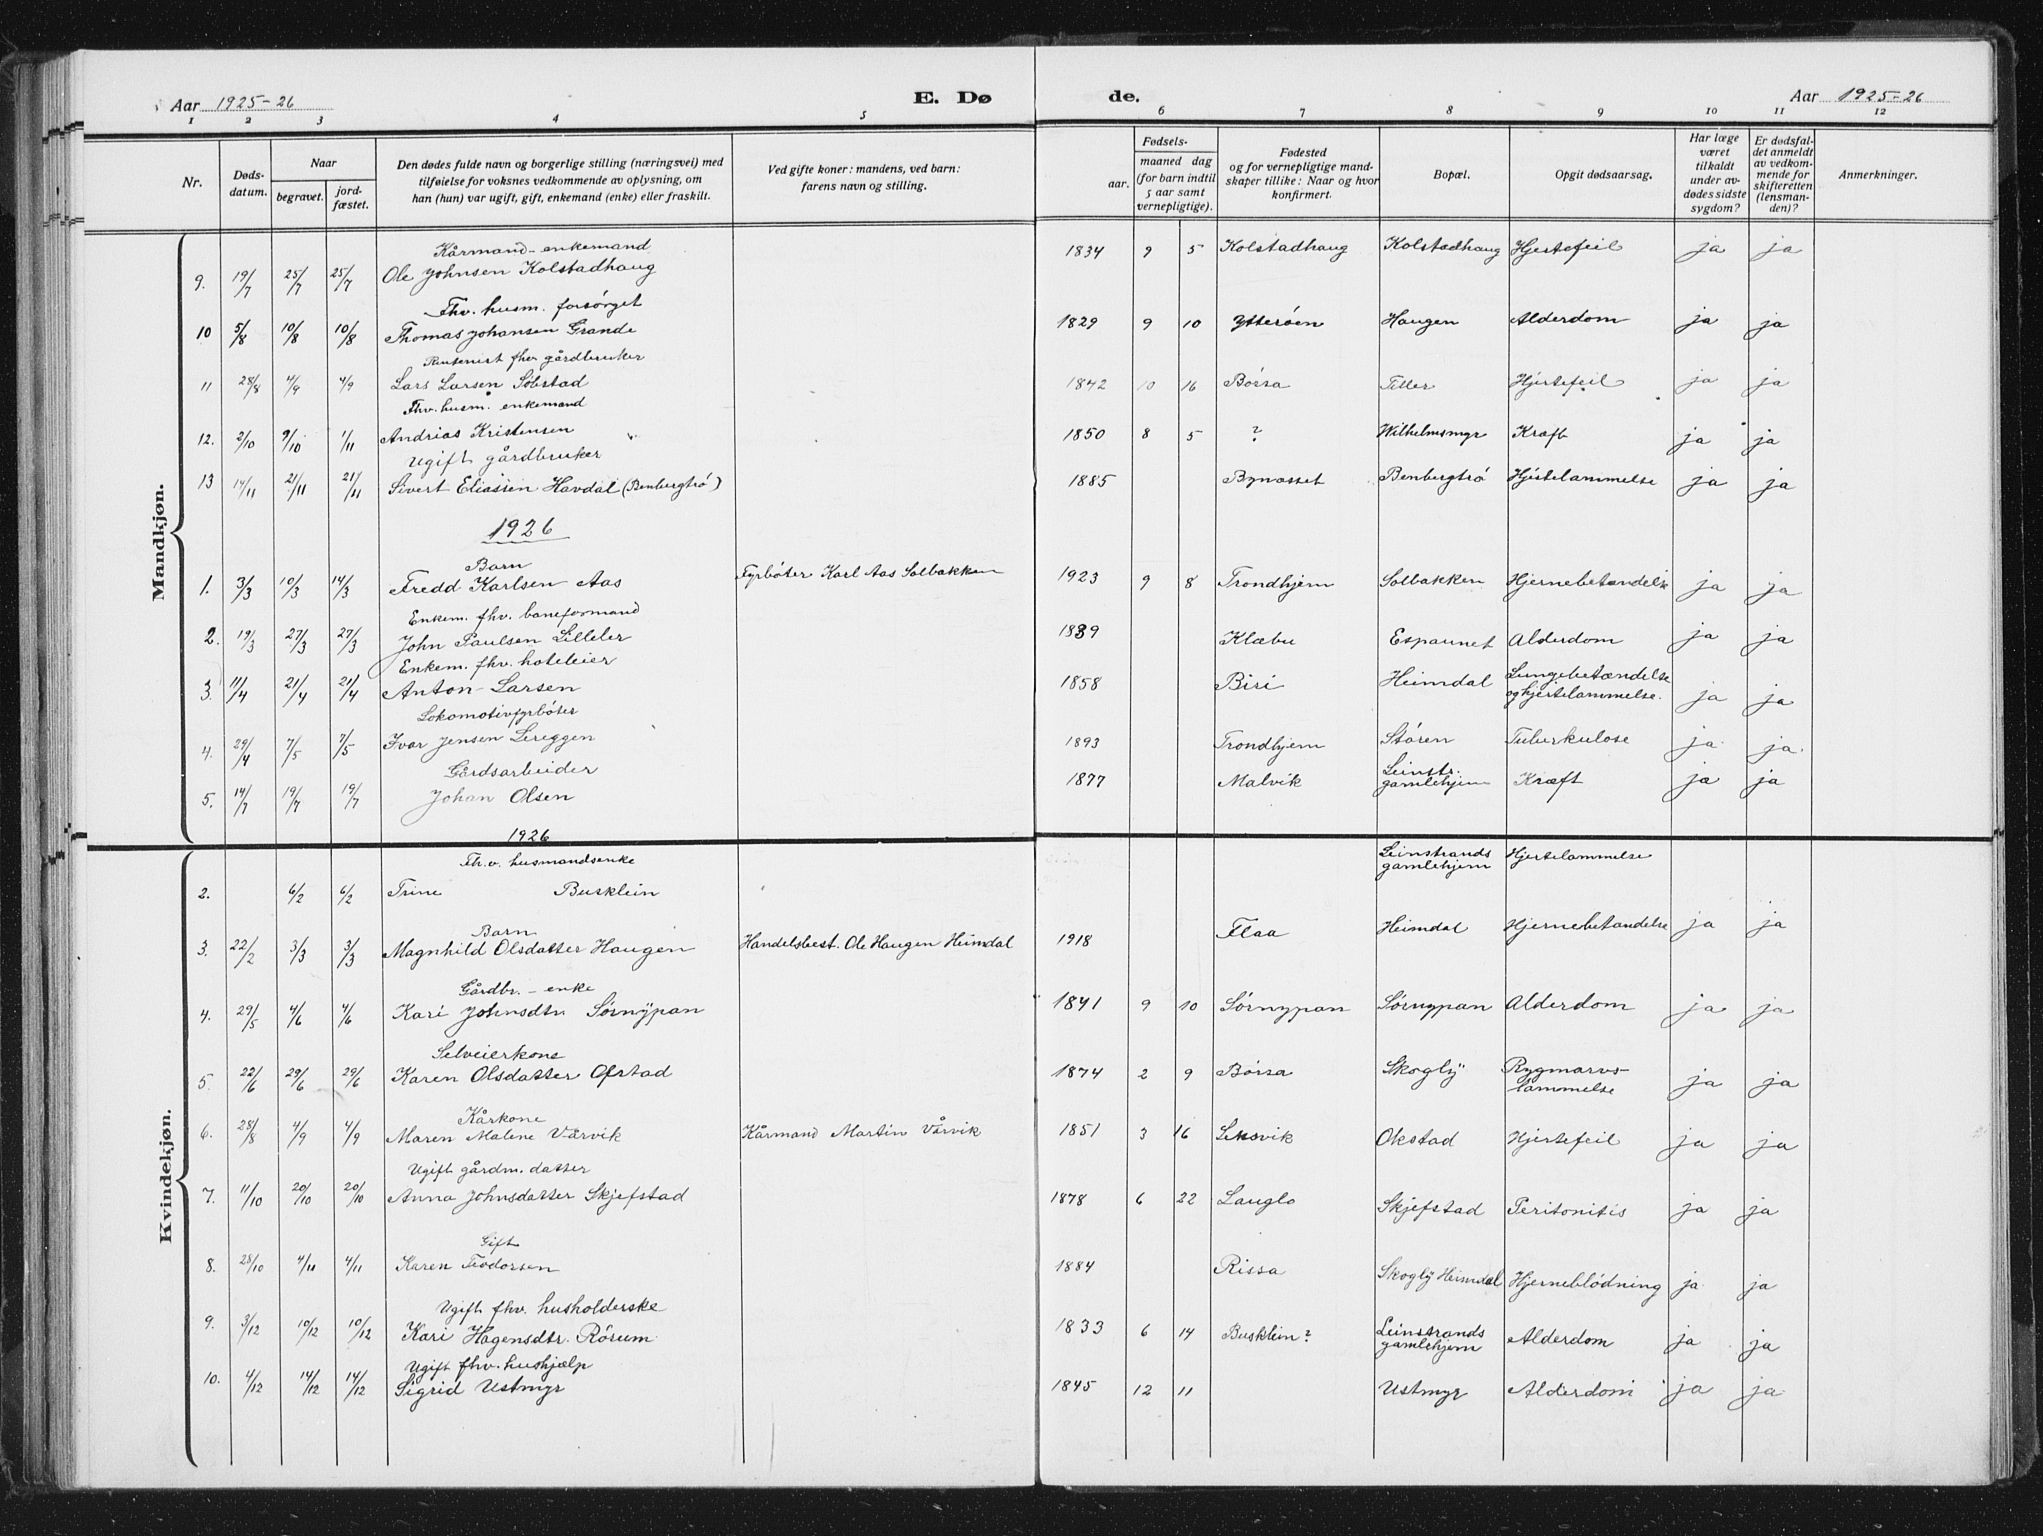 Aar 1925-26 E. Dø de. Aar 1925-26
1 2 3 4 5 6 7 8 9 10 11 12
Nr.
Døds-
datum.
Naar
begravet.
jord-
fæstet.
Den dødes fulde navn og borgerlige stilling (næringsvei) med
tilføielse for voksnes vedkommende av oplysning, om
han (hun) var ugift, gift, enkemand (enke) eller fraskilt.
Ved gifte koner: mandens, ved barn:
farens navn og stilling.
Fødsels-
aar.
maaned dag
(for barn indtil
5 aar samt
vernepligtige).
Fødested
og for vernepligtige mand-
skaper tillike: Naar og hvor
konfirmert.
Bopæl.
Opgit dødsaarsag.
Har læge
været
tilkaldt
under av-
dødes sidste
sygdom?
Er dødsfal-
det anmeldt
av vedkom-
mende for
skifteretten
(lensman-
den)?
Anmerkninger.
Mandkjøn.
Kårmand - enkemand
9. 19/7 25/7 25/7 Ole Johnsen Kolstadhaug 1834 9 5 Kolstadhaug Kolstadhaug Hjertefeil ja ja
Fhv. husm. forsørget
10 5/8 10/8 10/8 Thomas Johansen Grande 1829 9 10 Ytterøen Haugen Alderdom ja ja
Rentenist fhv. gårdbruker
11 28/8 4/9 4/9 Lars Larsen Søbstad 1842 10 16 Börsa Tiller Hjertefeil ja ja
Fhv. husm. enkemand
12. 2/10 9/10 1/11 Andrias Kristensen 1850 8 5 ? Wilhelmsmyr Kræft ja ja
Ugift gårdbruker
13 14/11 21/11 21/11 Sivert Eliassen Havdal (Benbergtrø) 1885 Bynæsset Benbergtrö Hjertelammelse ja ja
1926
Barn
1. 3/3 10/3 14/3 Fredd Karlsen Aas Fyrbøter Karl Aas Solbakken 1923 9 8 Trondhjem Solbakken Hjernebetændelse ja ja
Enkem. fhv. baneformand
2. 19/3 27/3 27/3 John Paulsen Lilleler 1839 Klæbu Espaunet Alderdom ja ja
Enkem. fhv. hoteleier
3. 11/4 21/4 21/4 Anton Larsen 1858 Biri Heimdal Lungebetændelse
og hjertelammelse. ja ja
Lokomotivfyrbøter
4. 29/4 7/5 7/5 Ivar Jensen Lereggen 1893 Trondhjem Støren Tuberkulose ja ja.
Gårdsarbeider
5. 14/7 19/7 19/7 Johan Olsen 1877 Malvik Leinstr.
gamlehjem Kræft ja ja
1926
Kvindekjøn.
Fh.v. husmandsenke
2. 6/2 6/2 Trine Busklein Leinstrands
gamlehjem Hjertelammelse
Barn
3. 22/2 3/3 3/3 Magnhild Olsdatter Haugen Handelsbest. Ole Haugen Heimdal 1918 Flaa Heimdal Hjernebetændelse ja ja
Gårdbr. - enke
4. 29/5 4/6 4/6 Kari Johnsdtr Sørnypan 1841 9 10 Sørnypan Sørnypan Alderdom ja ja
Selveierkone
5. 22/6 29/6 29/6 Karen Olsdatter Øfstad 1874 2 9 Börsa Skoglÿ Rygmarvs-
lammelse ja ja
Kårkone
6. 28/8 4/9 4/9 Maren Malene Vårvik Kårmand Martin Vårvik 1851 3 16 Leksvik Okstad Hjertefeil ja ja
Ugift gårdm. datter
7. 11/10 20/10 20/10 Anna Johnsdatter Skjefstad 1878 6 22 Lauglo Skjefstad Peritonitis ja ja
Gift
8. 28/10 4/11 4/11 Karen Teodorsen 1884 Rissa Skoglÿ Heimdal Hjerneblödning ja ja
Ugift fhv. husholderske
9. 3/12 10/12 10/12 Kari Hagensdtr. Rörum 1833 6 14 Busklein? Leinstrands
gamlehjem Alderdom ja ja
Ugift fhv. hushjælp
10. 4/12 14/12 14/12 Sigrid Ustmyr 1845 12 11 Ustmyr Alderdom ja ja